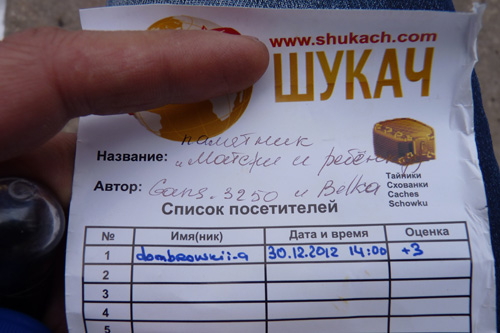 www.shukach.com
ШУКАЧ
памятник
Название: "Матери и ребёнку"
Тайники
Схованки
Caches
Schowku
Автор: Gans.3250 и Belka
Список посетителей
№ Имя(ник) Дата и время Оценка
1 dombrowskii-a 30.12.2012 14:00 +3
2
3
4
5